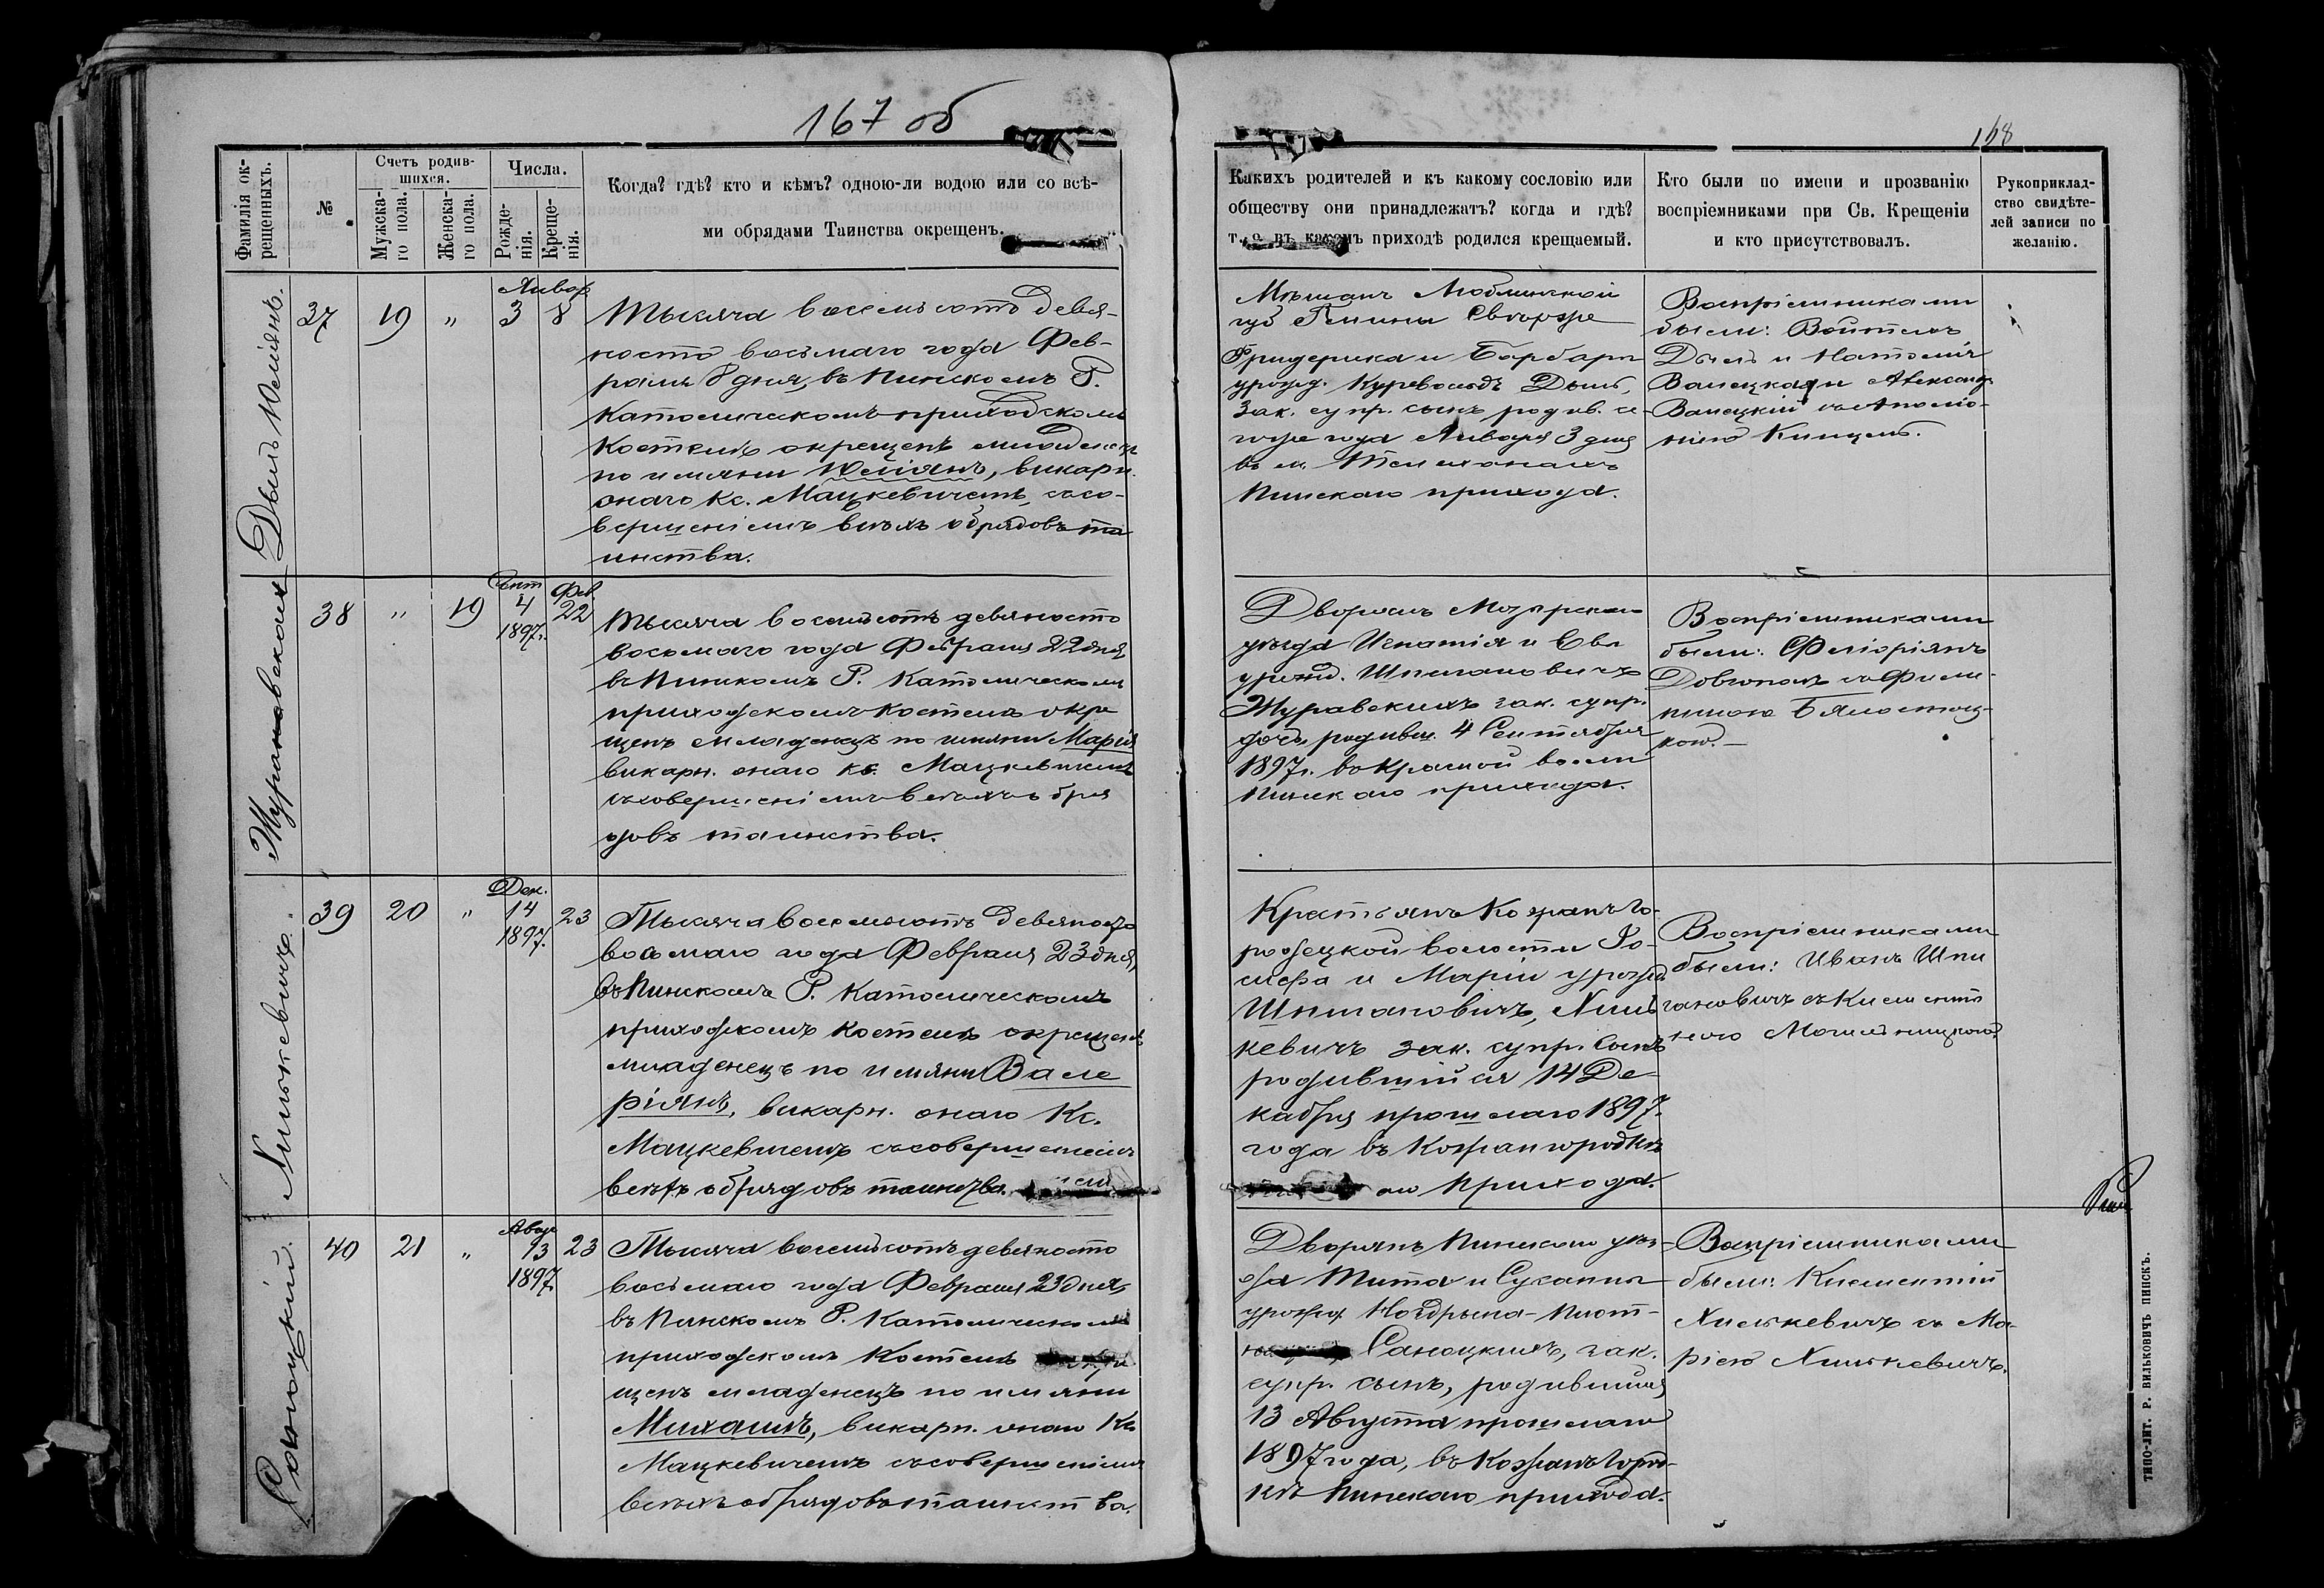 167 об
168
Фамилія ок-
рещенныхъ.
№
Счетъ родив-
шихся.
Мужска-
го пола.
Женска-
го пола.
Числа.
Рожде-
нія.
Креще-
нія.
Когда? гдѣ? кто и кѣмъ? одною-ли водою или со всѣ-
ми обрядами Таинства окрещенъ.
Каких​ъ родителей и къ какому сословію или
обществу они принадлежатъ? когда и гдѣ?
т. е. въ какомъ приходѣ родился крещаемый.
Кто были по имени и прозванію
воспріемниками при Св. Крещеніи
и кто присутствовалъ.
Рукоприклад-
ство свидѣте-
лей записи по
желанію.
Дыль Юліянъ.
37
19
"
Январ
3 8
Тысяча восемьсотъ девя-
носто восьмаго года Фев-
раля 8 дня, въ Пинскомъ Р.
Католическомъ приходскомъ
Костелѣ окрещенъ младенецъ
по имяни Юліянъ, викарн.
онаго Кс. Мацкевичемъ, съ со-
вершеніемъ всѣхъ обрядовъ та
инства.
Мѣщанъ Люблинской
губ Гмины
Фридерика и Барбары
урожд. Дыль,
Зак. супр. сынъ родив. се-
го года Января 3 дня
въ м. Телеханахъ
Пинскаго прихода.
Воспріемниками
были: Войтехъ
Дыль и Наталія
Валецкая и Александръ
Валецкій съ Аполо-
ніею
Журановская
38
"
19
Сент
4
1897.
Фев
22
Тысяча восемьсотъ девяносто
восьмаго года Февраля 22 дня,
въ Пинскомъ Р. Католическомъ
приходскомъ Костелѣ окре
щенъ младенецъ по имяни Марія
викарн. онаго кс. Мацкевичемъ
съ совершеніемъ всѣхъ обря
довъ таинства.
Дворянъ Мозырскаго
уѣзда Игнатія и Евы
урожд. Шпигановичъ
Журавскихъ зак. супр.
дочь, родивш. 4 Сентября
1897г. въ Красной воли
Пинскаго прихода.
Воспріемниками
были: Флоріянъ
съ Фили-
пиною Бялостоц-
кою.
Хилькевичъ.
39
20
"
Дек.
14
1897.
23
Тысяча восемьсотъ девяносто
восьмаго года Февраля 23 дня,
въ Пинскомъ Р. Католическомъ
приходскомъ Костелѣ окрещенъ
младенецъ по имяни Вале
ріянъ, викарн. онаго Кс.
Мацкевичемъ съ совершеніемъ
всѣхъ обрядовъ таинства.
Крестьянъ Кожанъ Го-
родецкой волости Іо-
сифа и Маріи урожд
Шпигановичъ, Хиль
кевичъ зак. супр. Сынъ
родившійся 14 Де-
кабря прошлаго 1897.
года въ Кожангородкѣ
прихода.
Воспріемниками
были: Иванъ Шпи
гановичъ съ Клементи
ною
Саноцкій.
40
21
"
Авгус
13
1897
23
Тысяча восемьсотъ девяносто
восьмаго года Февраля 23 дня,
въ Пинскомъ Р. Католическомъ
приходскомъ Костелѣ окре
щенъ младенецъ по имяни
Михаилъ, викарн. онаго Кс.
Мацкевичемъ съ совершеніемъ
всѣхъ обрядовъ таинства.
Дворянъ Пинскаго уѣз-
да Тита и Сузанны
урожд.
Саноцкихъ, зак.
супр. сынъ, родившійся
13 Августа прошлаго
1897 года, въ Кожанъ Город-
кѣ Пинскаго прихода.
Воспріемниками
были: Клементій
Хилькевичъ съ Ма-
ріею Хилькевичъ.
ТИПО-ЛИТ. Р. ВИЛЬКОВИЧЪ ПИНСКЪ.